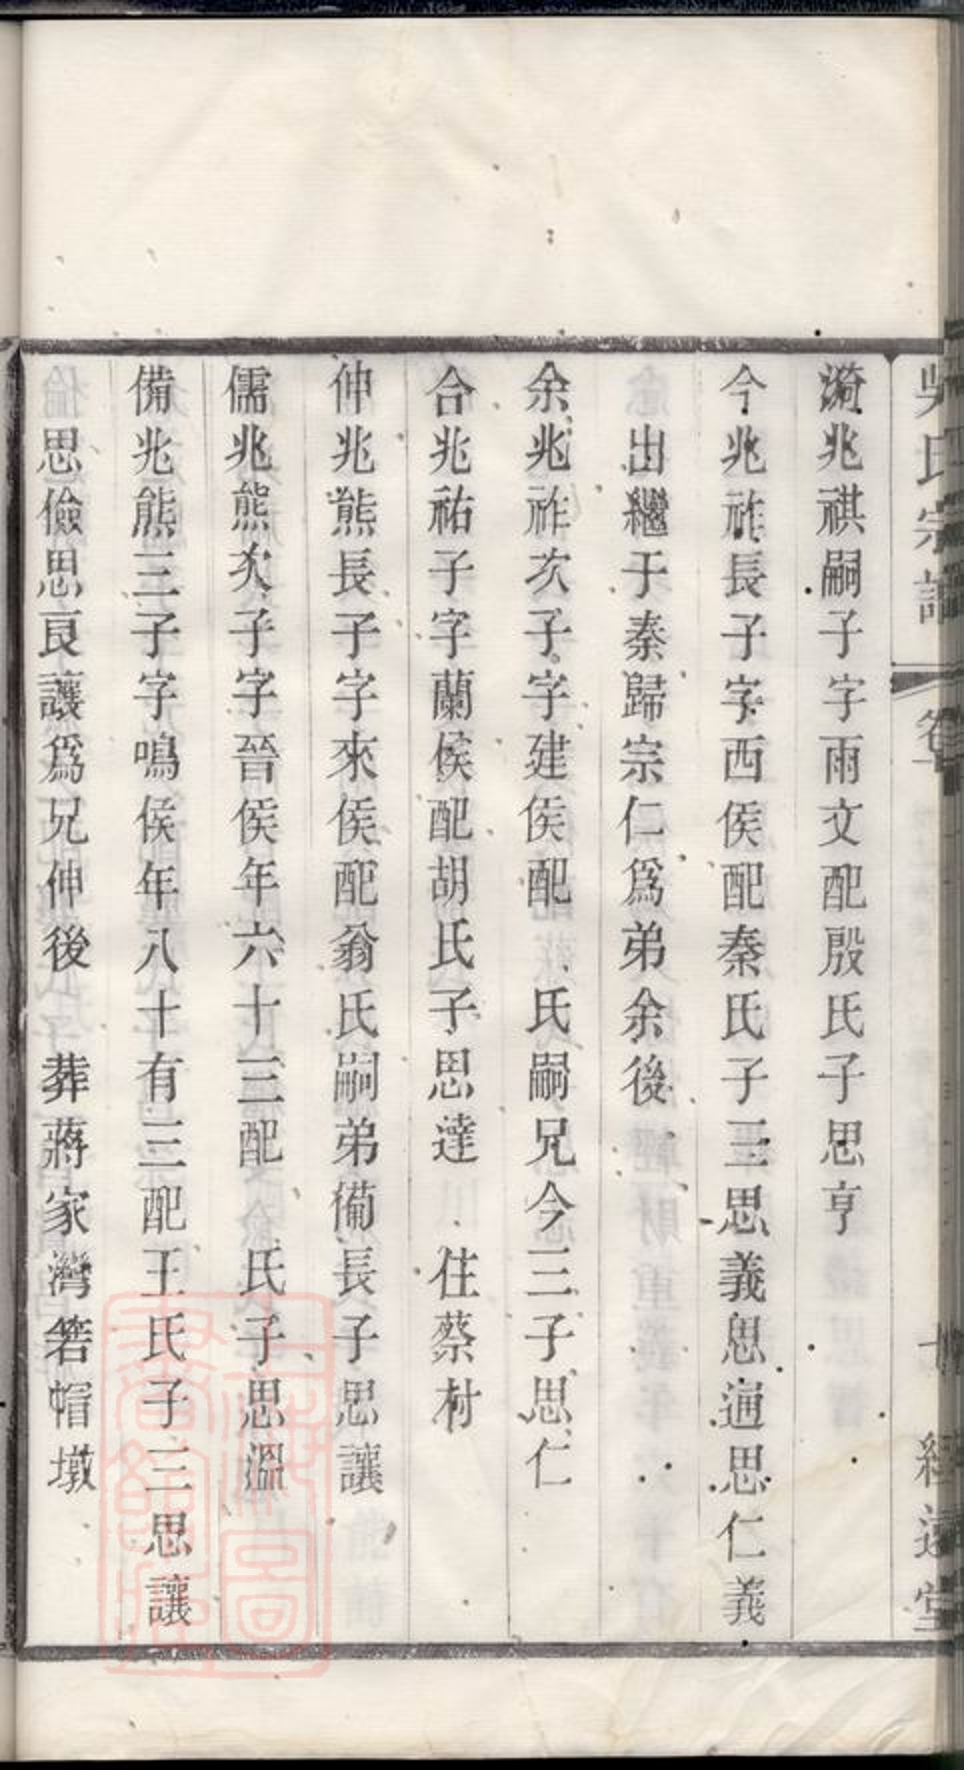 吳氏宗譜 卷 七 經遠堂
漪兆祺嗣子字雨文配殷氏子思亨
今兆祚長子字西侯配秦氏子三思義思通思仁義
出繼于秦歸宗仁爲弟余後
余兆祚次子字建侯配 氏嗣兄今三子思仁
合兆祐子字蘭侯配胡氏子思達 住蔡村
仲兆熊長子字來侯配翁氏嗣弟備長子思讓
儒兆熊次子字晉侯年六十三配 氏子思溫
備兆熊三子字鳴侯年八十有三配王氏子三思讓
思儉思良讓爲兄仲後 葬蔣家灣箬帽墩
上海圖書館藏